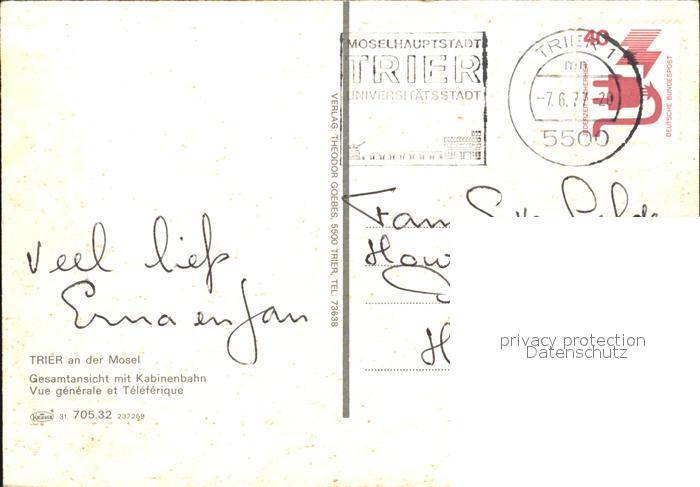 MOSELHAUPTSTADT
TRIER
UNIVERSITÄTSSTADT
TRIER 1
mn
-7.6.77-20
5500
40
JEDERZEIT SICHERHEIT
DEUTSCHE BUNDESPOST
VERLAG: THEODOR GOEBES, 5500 TRIER, TEL. 73638
Veel liefs
Erna en Jan
Fam
privacy protection
Datenschutz
TRIER an der Mosel
Gesamtansicht mit Kabinenbahn
Vue générale et Téléférique
Krüger 31. 705.32 237269